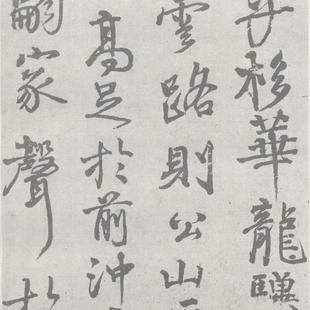 子移華龍驤
雲路則公山
高足於前沖
嗣家聲於